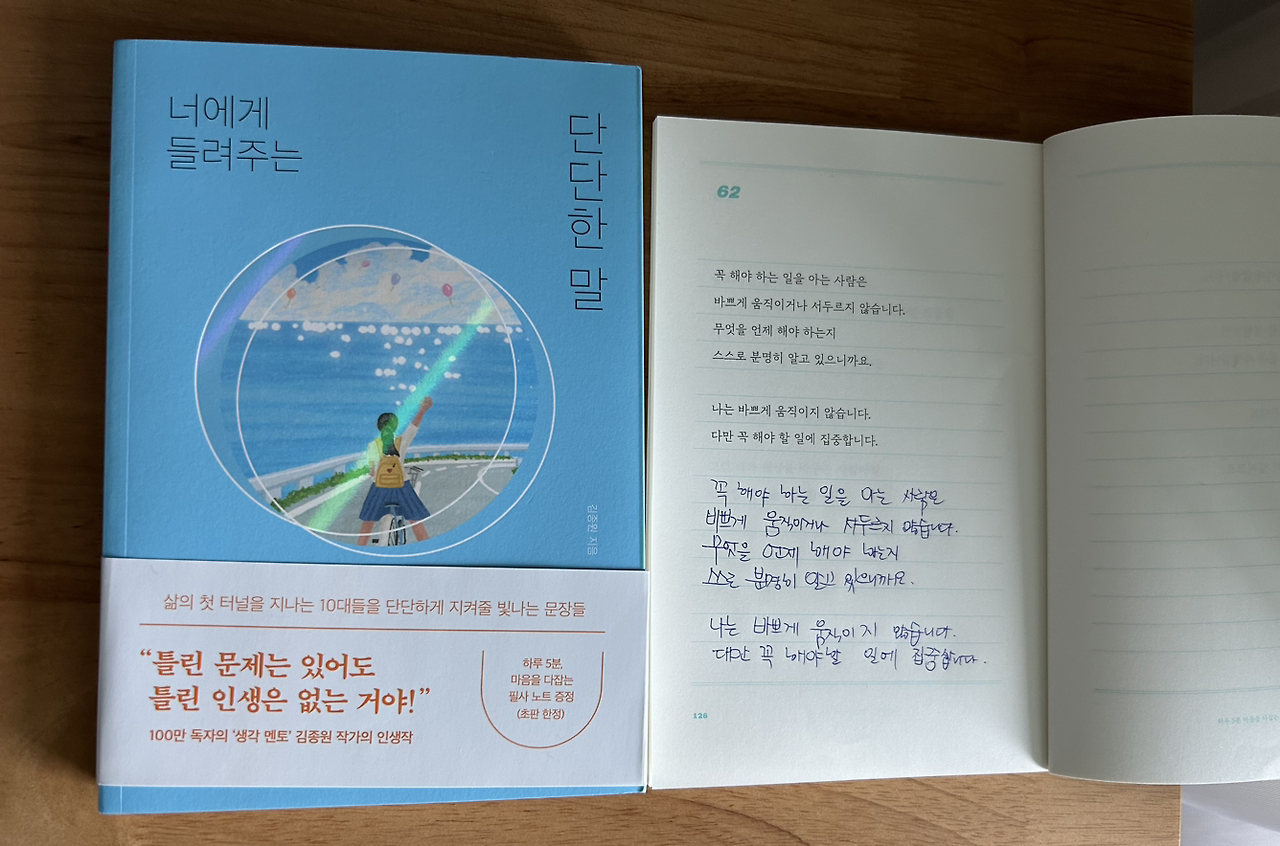 너에게
들려주는
단단한 말
김종원 지음
삶의 첫 터널을 지나는 10대들을 단단하게 지켜줄 빛나는 문장들
“틀린 문제는 있어도
틀린 인생은 없는 거야!”
100만 독자의 ‘생각 멘토’ 김종원 작가의 인생작
하루 5분,
마음을 다잡는
필사 노트 증정
(초판 한정)
62
꼭 해야 하는 일을 아는 사람은
바쁘게 움직이거나 서두르지 않습니다.
무엇을 언제 해야 하는지
스스로 분명히 알고 있으니까요.
나는 바쁘게 움직이지 않습니다.
다만 꼭 해야 할 일에 집중합니다.
꼭 해야 하는 일을 아는 사람은
바쁘게 움직이거나 서두르지 않습니다.
무엇을 언제 해야 하는지
스스로 분명히 알고 있으니까요.
나는 바쁘게 움직이지 않습니다.
다만 꼭 해야 할 일에 집중합니다.
126
하루 5분 마음을